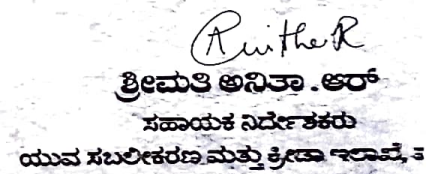 Anitha R
ಶ್ರೀಮತಿ ಅನಿತಾ .ಆರ್
ಸಹಾಯಕ ನಿರ್ದೇಶಕರು
ಯುವ ಸಬಲೀಕರಣ ಮತ್ತು ಕ್ರೀಡಾ ಇಲಾಖೆ,